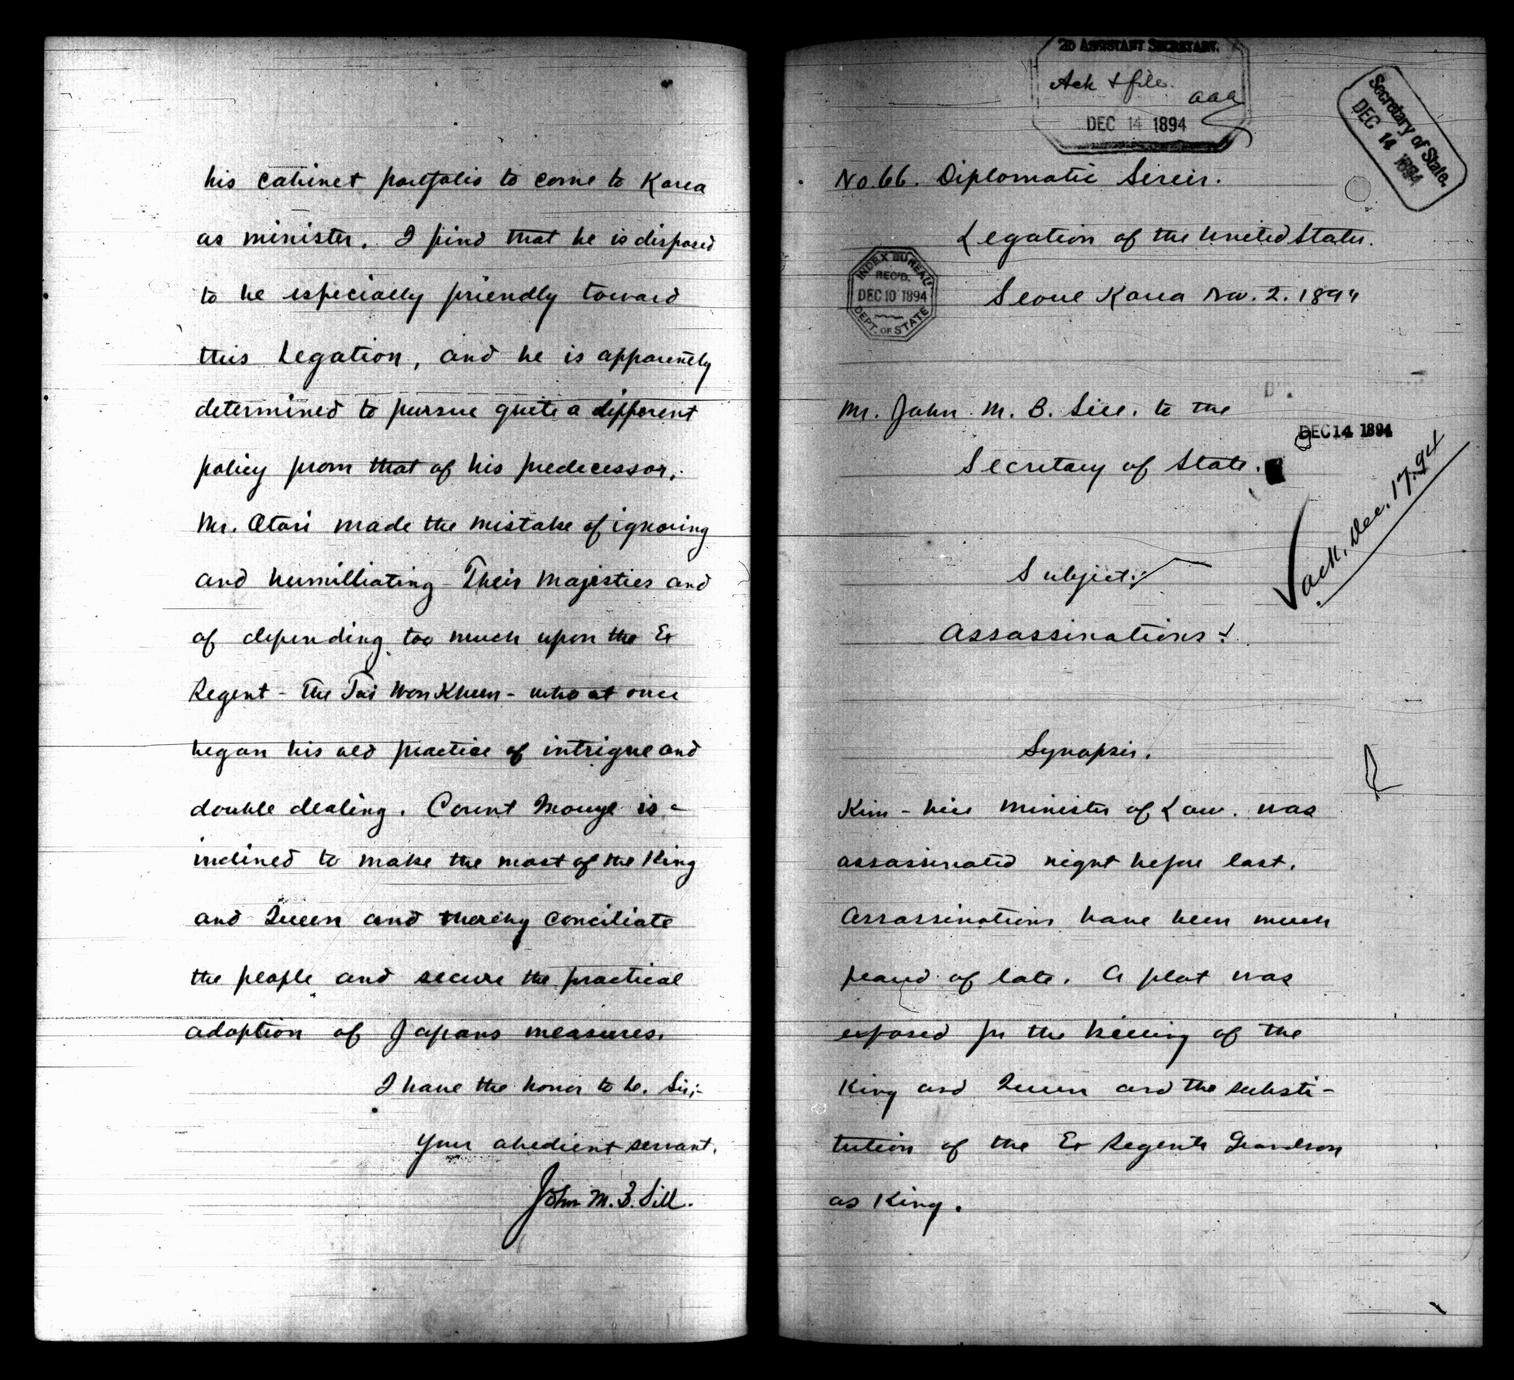 his cabinet portfolio to come to Korea
as minister. I find that he is disposed
to be especially friendly toward
this Legation, and he is apparently
determined to pursue quite a different
policy from that of his predecessor.
Mr. Otori made the mistake of ignoring
and humilliating Their Majesties and
of depending too much upon the Ex
Regent - the Tai Won Khun - who at once
began his old practice of intrigue and
double dealing. Count Inouye is
inclined to make the most of the King
and Queen and thereby conciliate
the people and secure the practical
adoption of Japans measures.
I have the honor to be, Sir;-
Your obedient servant,
John M. B. Sill.
2D ASSISTANT SECRETARY.
Ack & file.
aaa
DEC 14 1894
Secretary of State.
DEC 14 1894
No. 66. Diplomatic Series.
Legation of the United States.
INDEX BUREAU
REC'D.
DEC 10 1894
DEPT. OF STATE
Seoul Korea Nov. 2. 1894
Mr. John M. B. Sill. to the
DEC 14 1894
Secretary of State.
ack. Dec. 17. 94
Subject:
Assassinations:
Synopsis.
Kim - vice Minister of Law. was
assassinated night before last.
Assassinations have been much
feared of late. A plot was
exposed for the killing of the
King and Queen and the substi-
tution of the Ex Regents Grandson
as King.